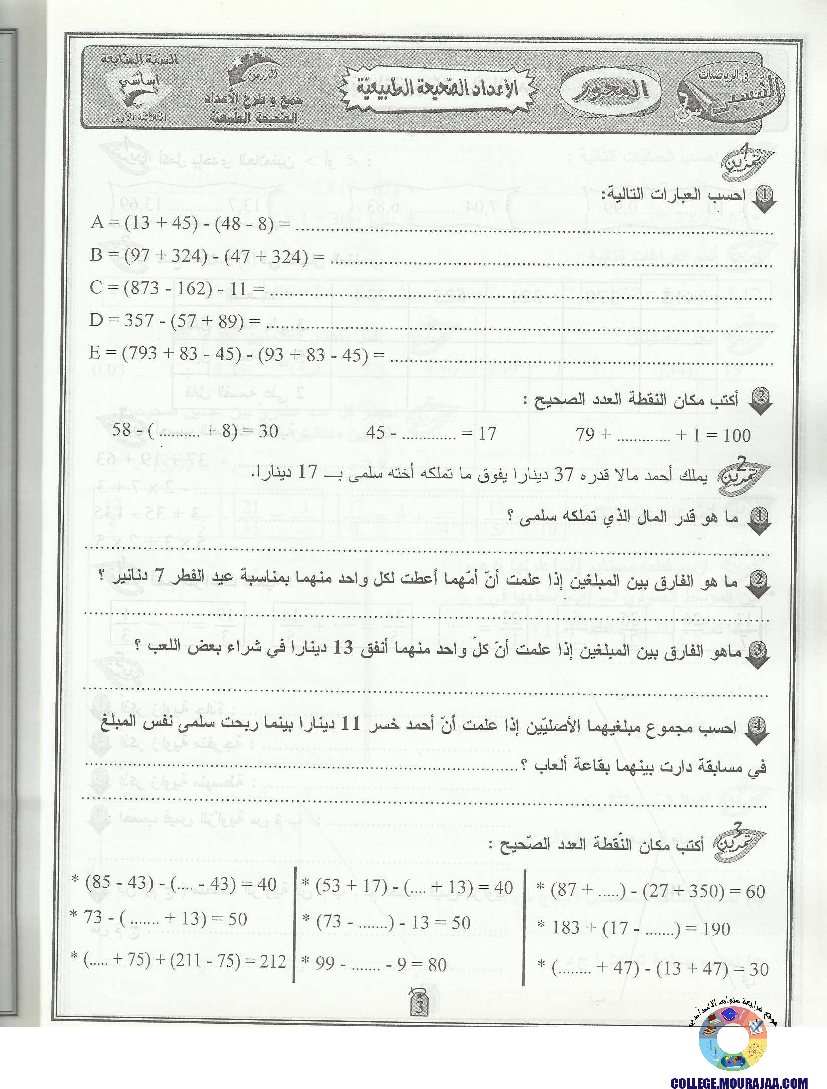 السنة السابعة
أساسي
الثلاثي الأول
الدرس
جمع و طرح الأعداد
الصحيحة الطبيعية
الأعداد الصحيحة الطبيعية
المحور
في الرياضيات
تمرين 1
1 احسب العبارات التالية:
A = (13 + 45) - (48 - 8) = ....................
B = (97 + 324) - (47 + 324) = ....................
C = (873 - 162) - 11 = ....................
D = 357 - (57 + 89) = ....................
E = (793 + 83 - 45) - (93 + 83 - 45) = ....................
2 أكتب مكان النقطة العدد الصحيح :
58 - ( .......... + 8) = 30 45 - ............. = 17 79 + ............. + 1 = 100
تمرين 2 يملك أحمد مالا قدره 37 دينارا يفوق ما تملكه أخته سلمى بـ 17 دينارا.
1 ما هو قدر المال الذي تملكه سلمى ؟
2 ما هو الفارق بين المبلغين إذا علمت أنّ أمّهما أعطت لكل واحد منهما بمناسبة عيد الفطر 7 دنانير ؟
3 ماهو الفارق بين المبلغين إذا علمت أنّ كلّ واحد منهما أنفق 13 دينارا في شراء بعض اللعب ؟
4 احسب مجموع مبلغيهما الأصليّين إذا علمت أنّ أحمد خسر 11 دينارا بينما ربحت سلمى نفس المبلغ
في مسابقة دارت بينهما بقاعة ألعاب ؟....................
تمرين 3 أكتب مكان النّقطة العدد الصّحيح :
* (85 - 43) - (.... - 43) = 40 * (53 + 17) - (.... + 13) = 40 * (87 + .....) - (27 + 350) = 60
* 73 - ( ....... + 13) = 50 * (73 - .......) - 13 = 50 * 183 + (17 - .......) = 190
* (..... + 75) + (211 - 75) = 212 * 99 - ........ - 9 = 80 * (........ + 47) - (13 + 47) = 30
3
موقع مراجعة
COLLEGE.MOURAJAA.COM